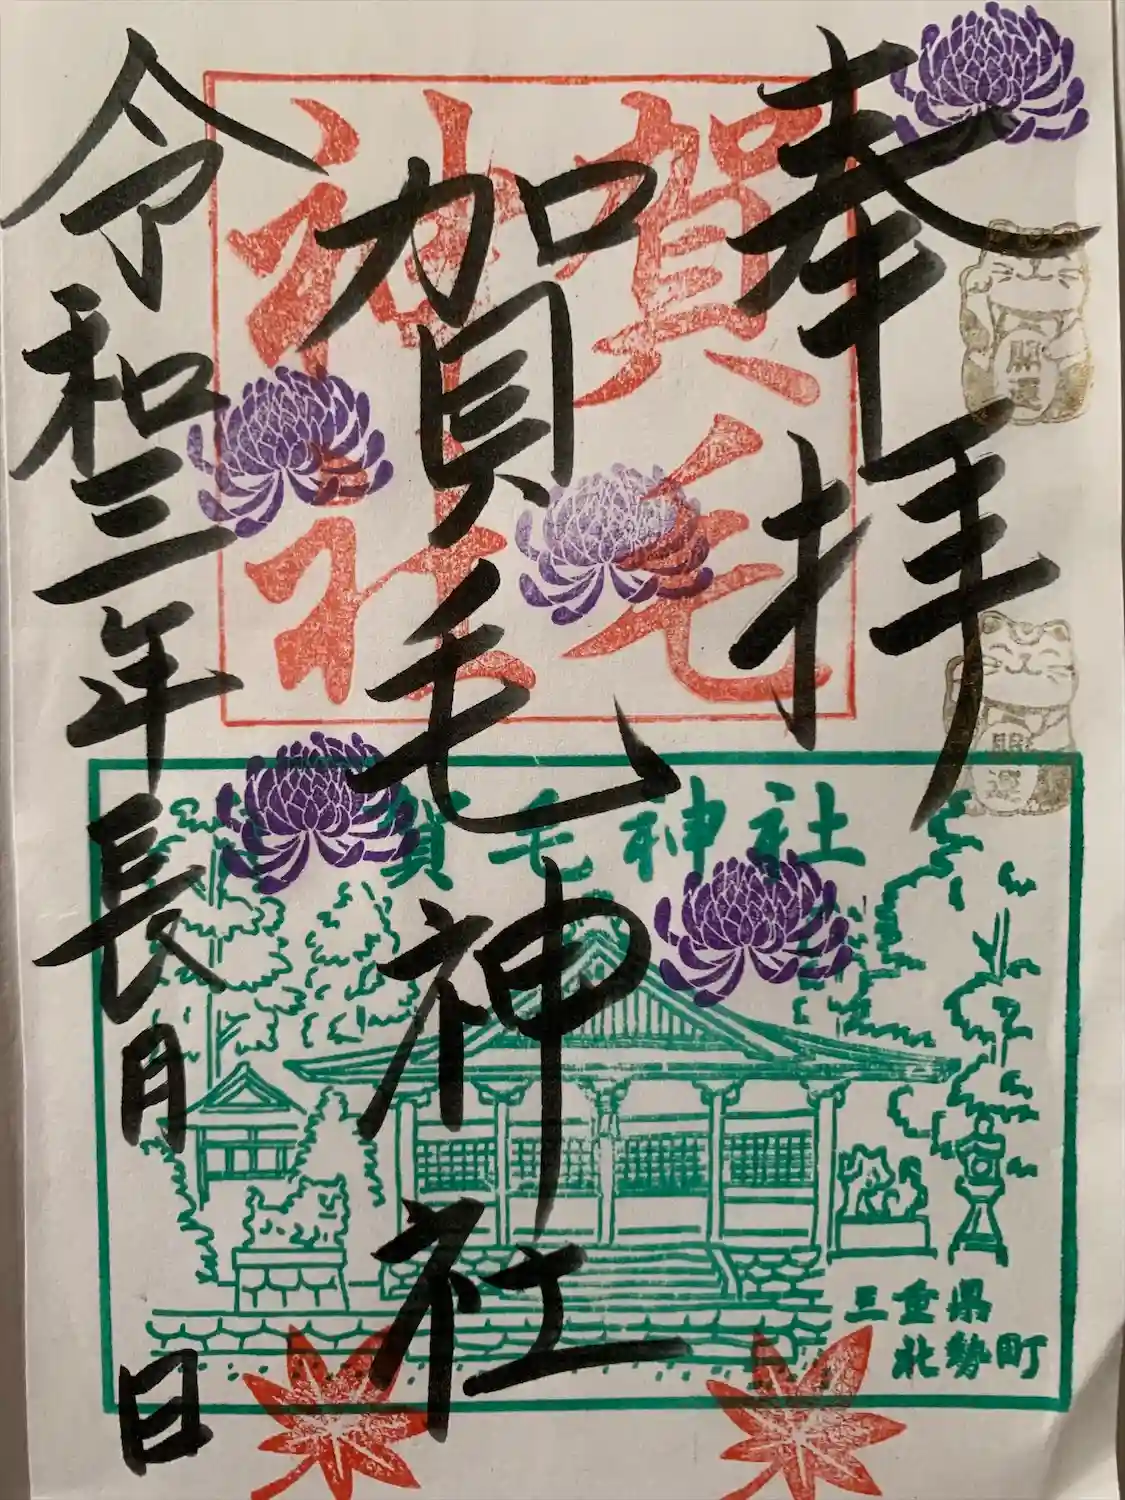 奉拝
開運
開運
賀毛
神社
賀毛神社
令和三年長月 日
賀毛神社
三重県
北勢町